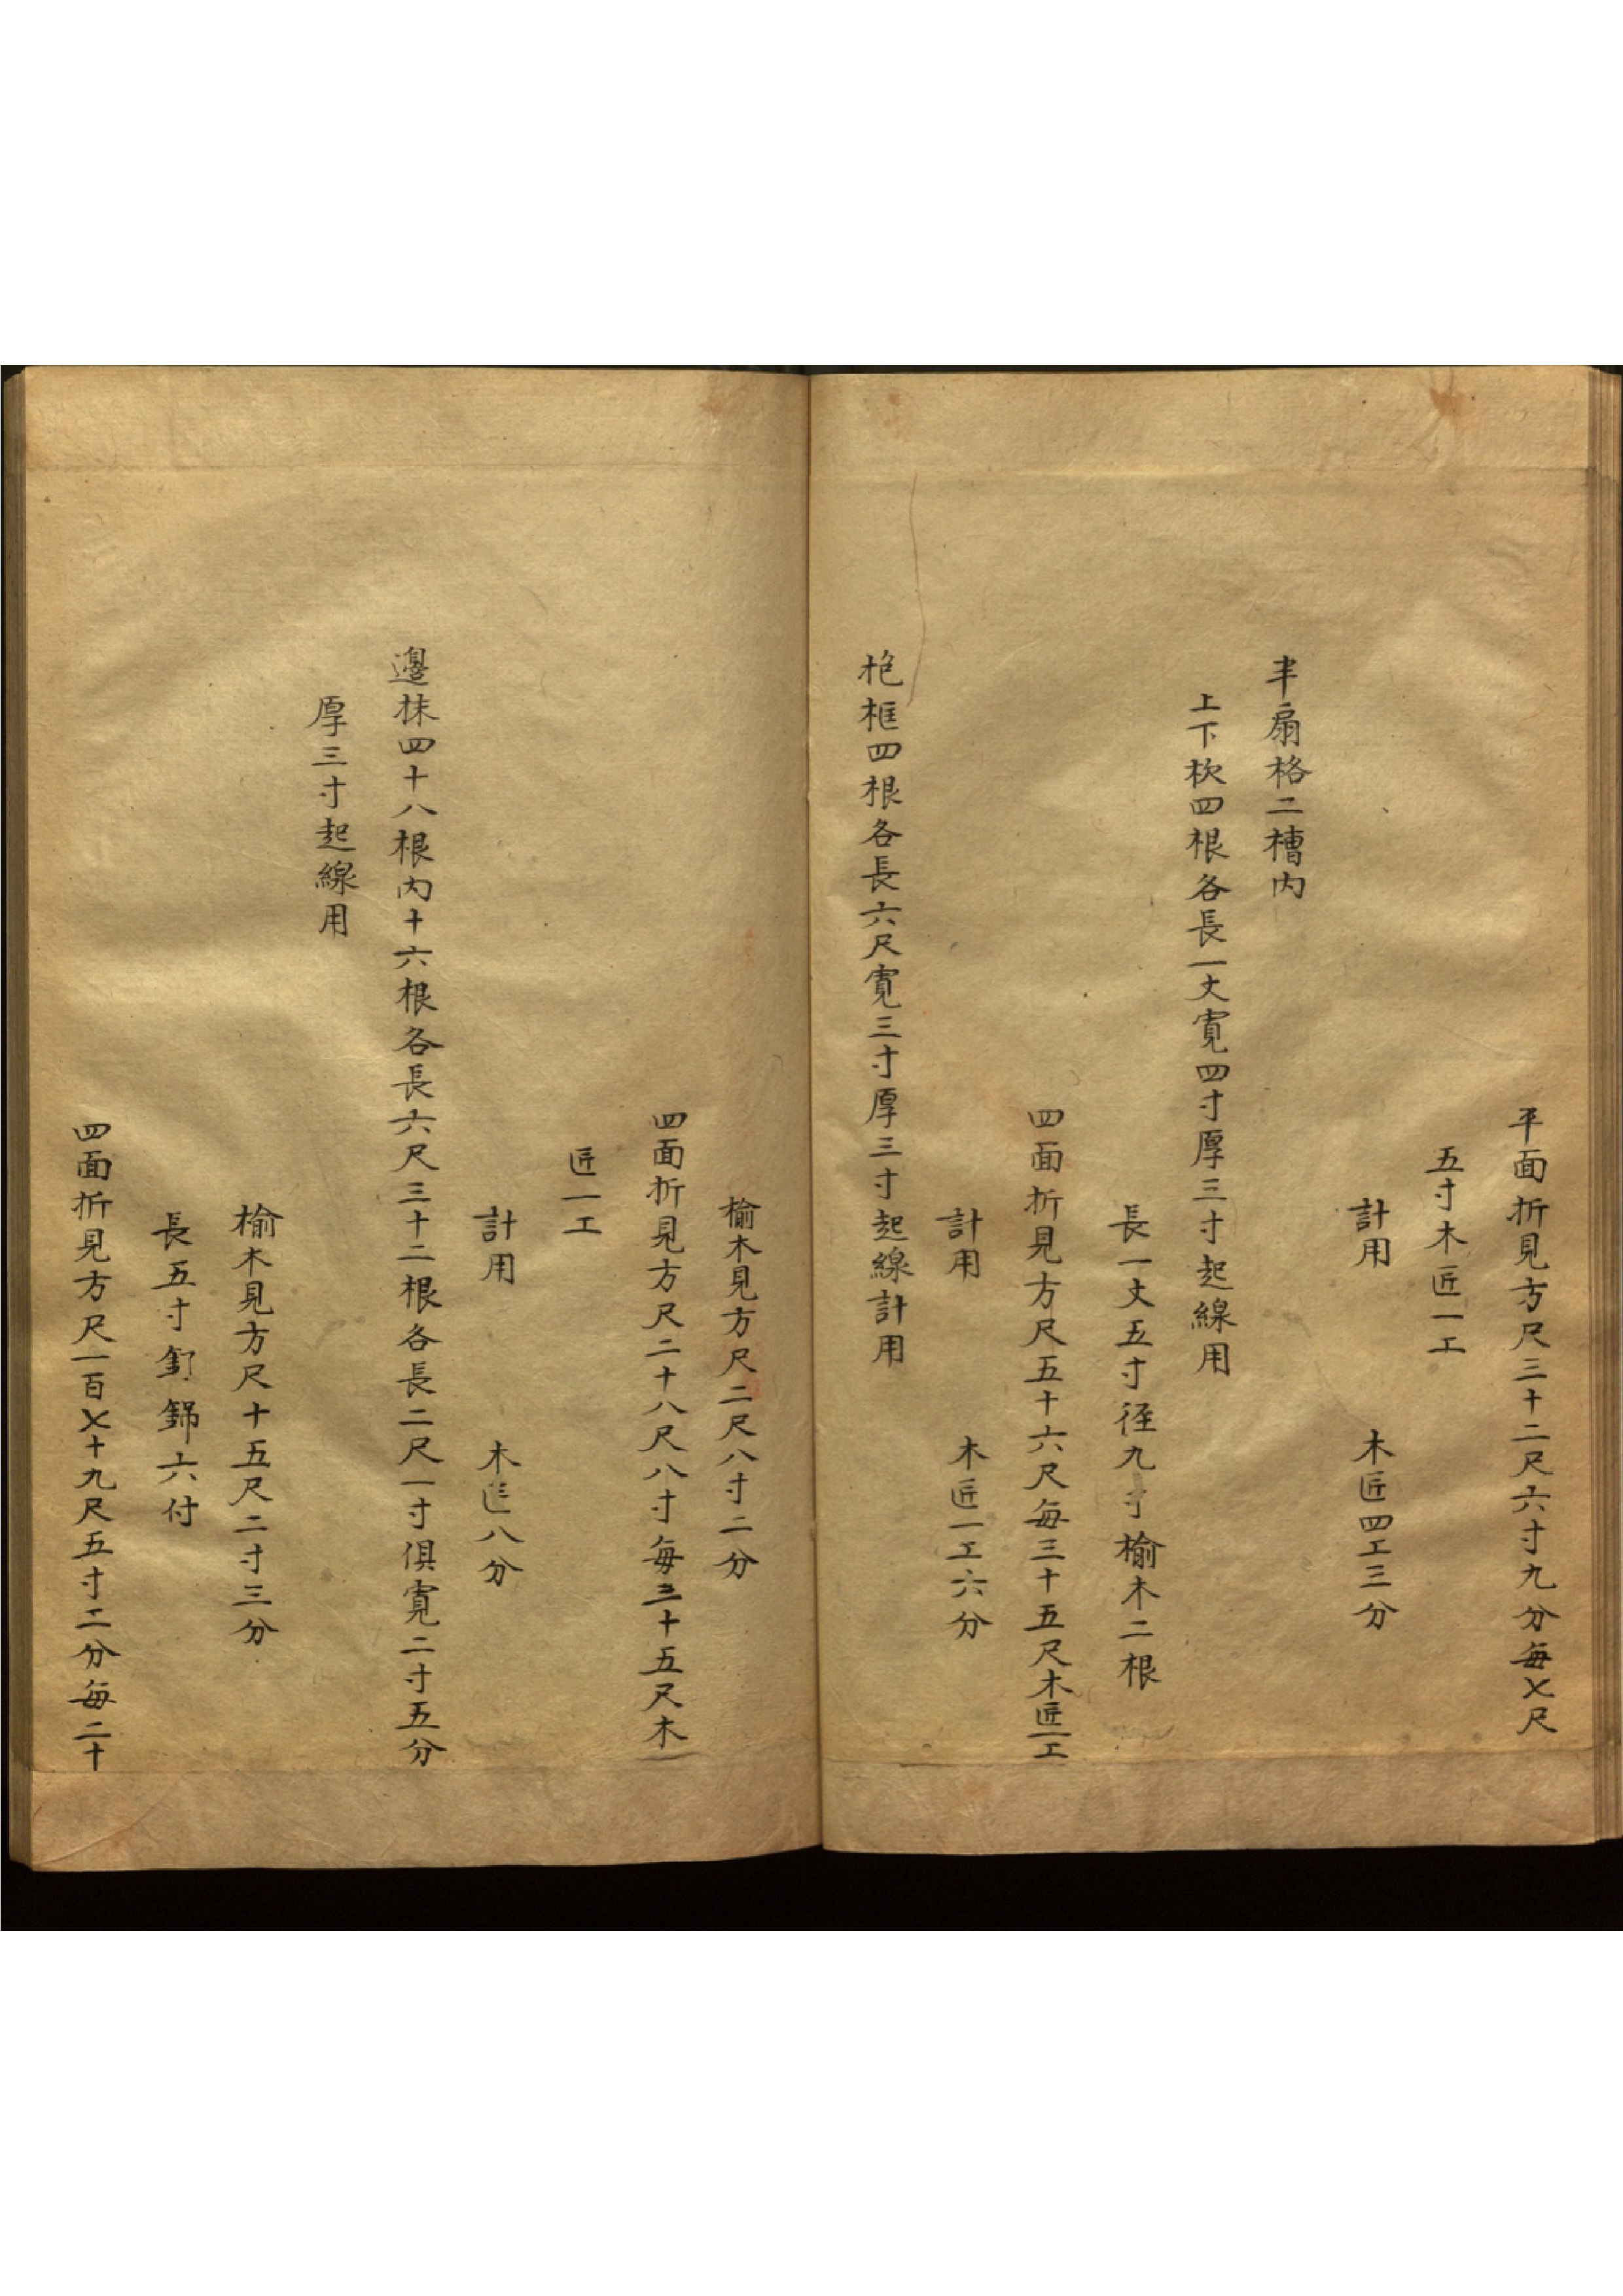 平面折見方尺三十二尺六寸九分每乂尺
五寸木匠一工
計用　木匠四工三分
半扇格二槽内
上下杴四根各長一丈寛四寸厚三寸起線用
長一丈五寸徑九寸榆木二根
四面折見方尺五十六尺每三十五尺木匠一工
計用　木匠一工六分
枹框四根各長六尺寛三寸厚三寸起線計用
榆木見方尺二尺八寸二分
四面折見方尺二十八尺八寸每三十五尺木
匠一工
計用　木匠八分
邊抹四十八根内十六根各長六尺三十二根各長二尺一寸俱寛二寸五分
厚三寸起線用
榆木見方尺十五尺二寸三分
長五寸釘錦六付
四面折見方尺一百乂十九尺五寸二分每二十